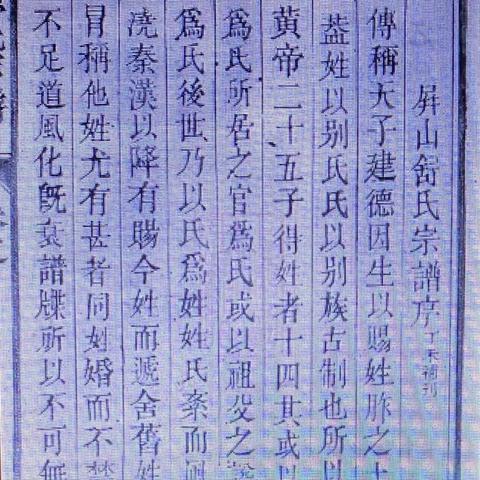 屛山舒氏宗譜序丁未補刊
傳稱天子建德因生以賜姓胙之土
葢姓以别氏氏以别族古制也所以
黃帝二十五子得姓者十四其或以
爲氏所居之官爲氏或以祖父之
爲氏後世乃以氏爲姓姓氏紊而
澆秦漢以降有賜今姓而遞舍舊姓
冒稱他姓尤有甚者同姓婚而不禁
不足道風化旣衰譜牒所以不可無